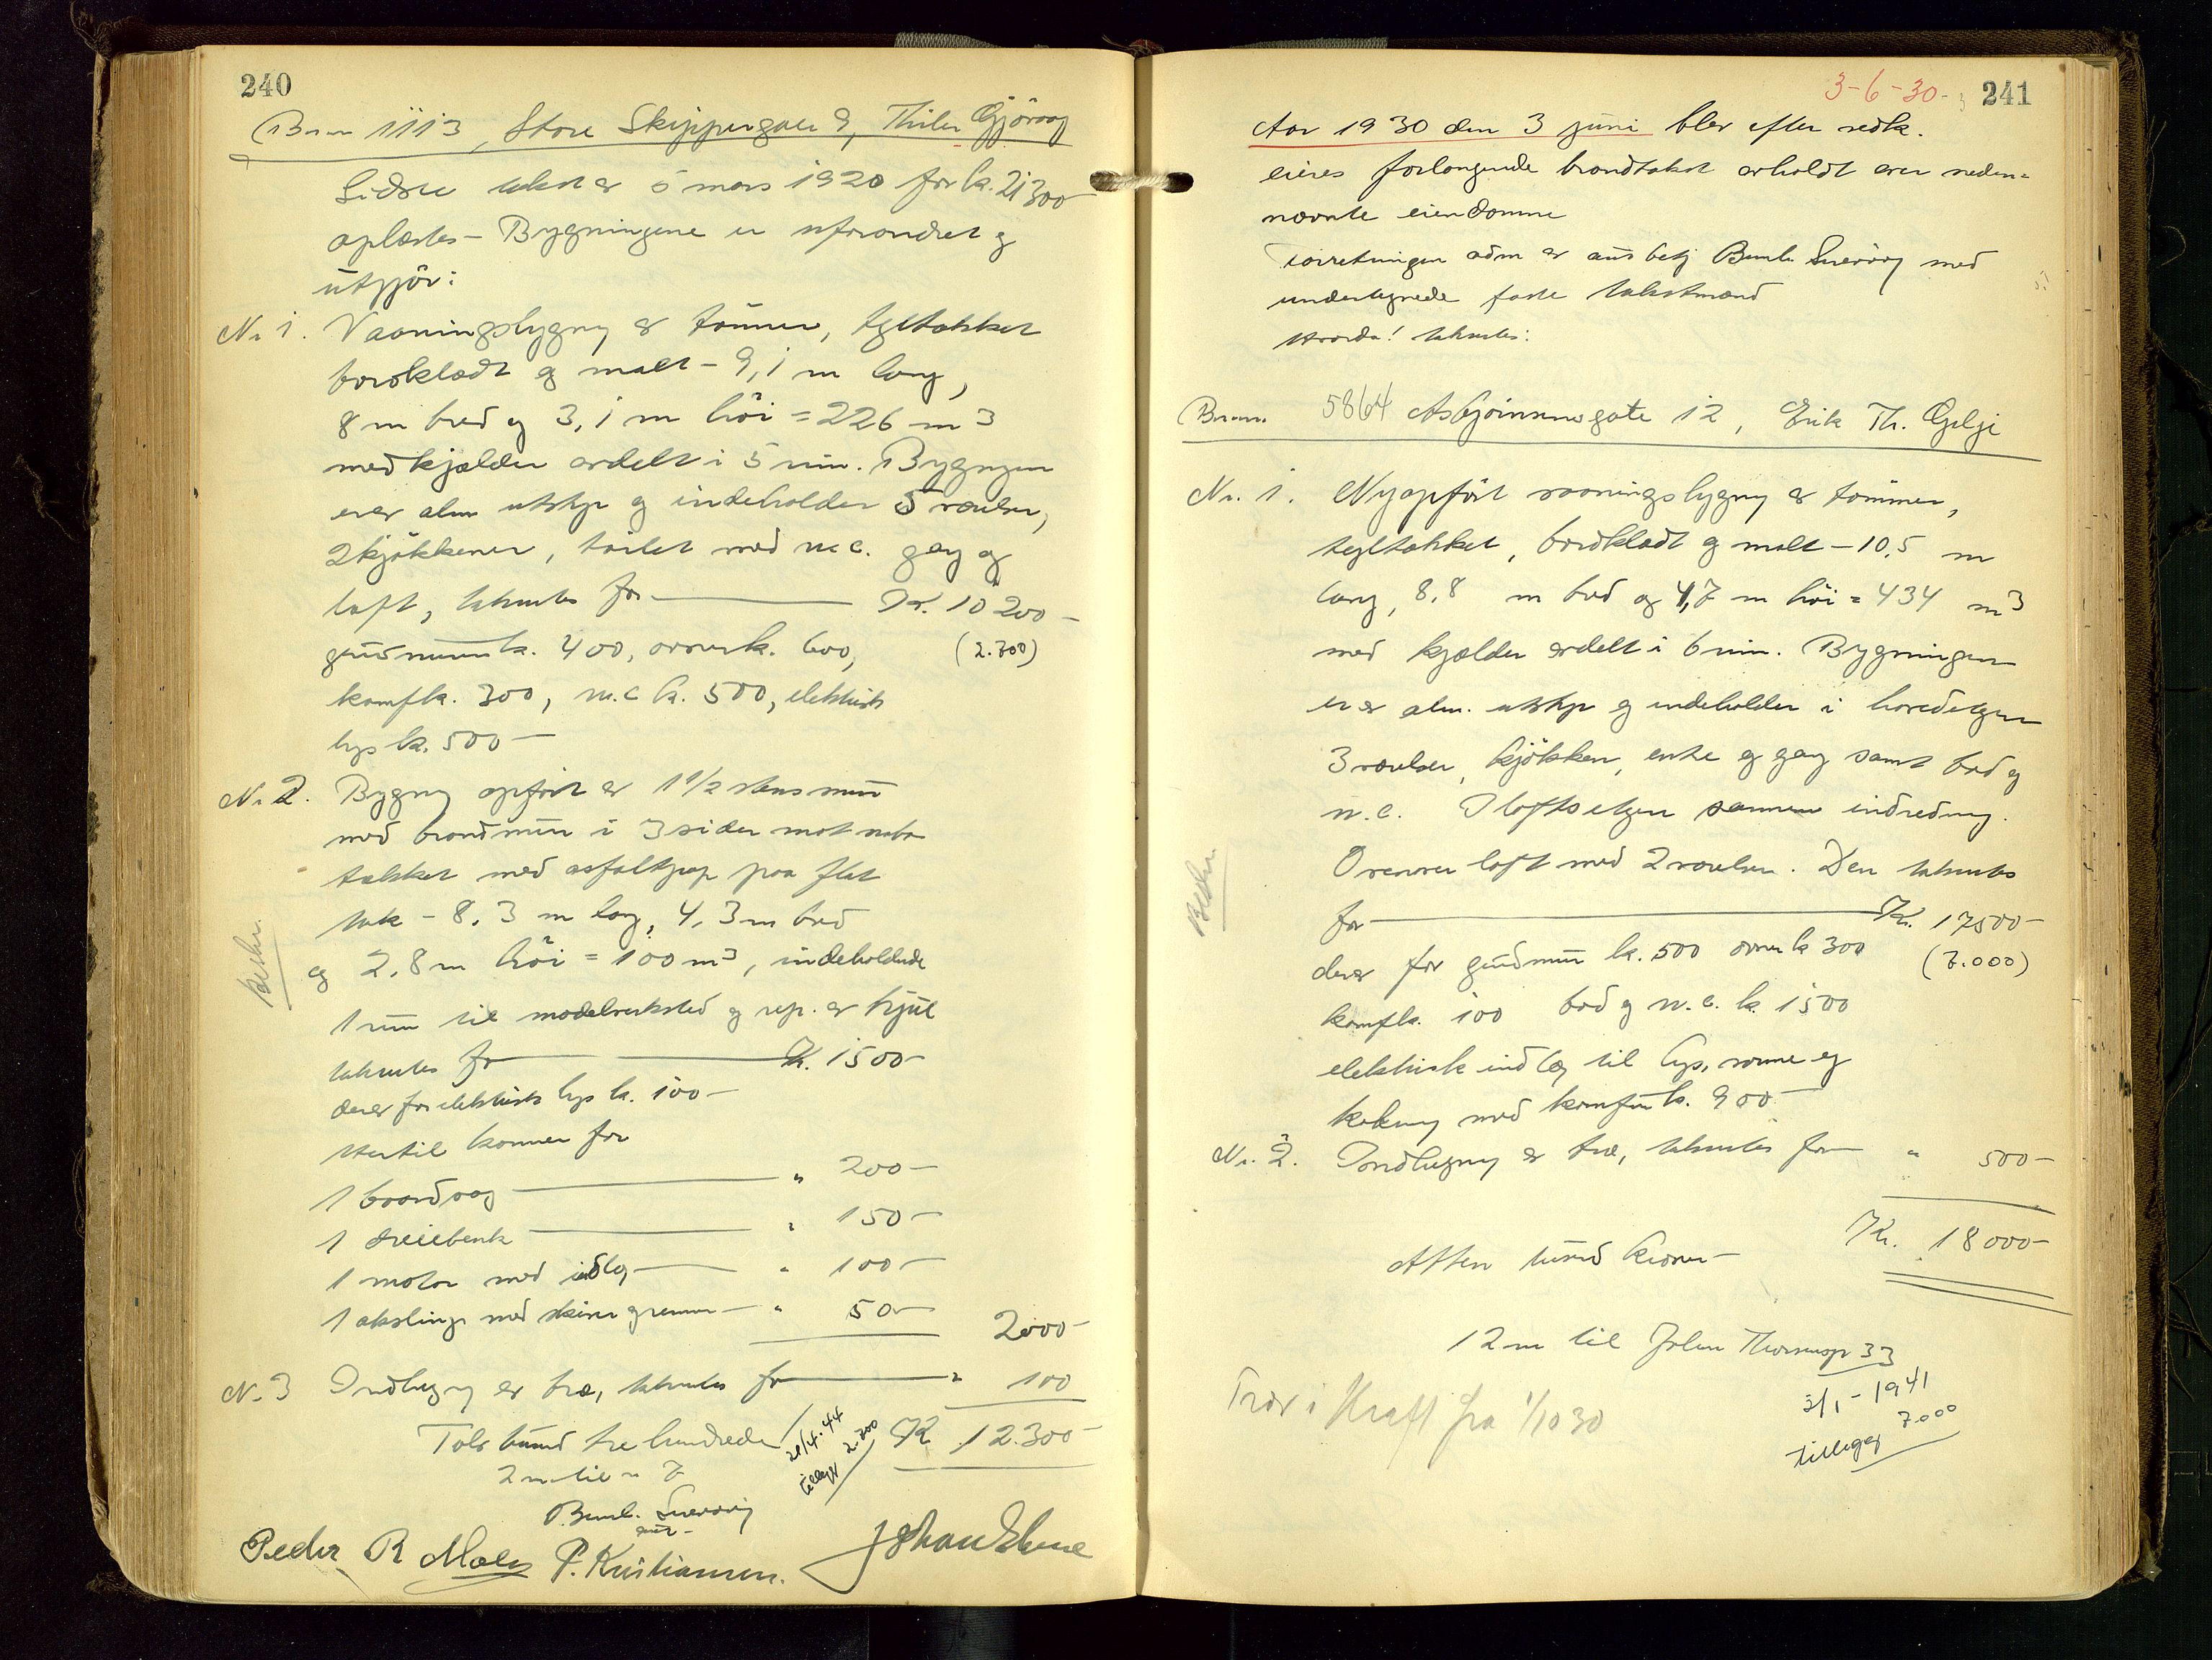 240
Brnr 1113, Store Skippergaten 9, Thilu Gjörvag
Sidste takst av 5 mars 1920 for kr. 21300
oplæstes - Bygningene er uforandret og
utgjör:
Nr 1. Vaaningsbygning av tömmer, tegltækket
bordklædt og malt - 9,1 m lang,
8 m bred og 3,1 m höi = 226 m3
med kjælder avdelt i 5 rum. Bygningen
er av alm utstyr og indeholder 5 værelser,
2 kjökkener, toilet med w.c. gang og
loft, takseres for Kr. 10200-
grundmur kr. 400, ovner k. 600, (2.300)
komf k. 300, w.c kr. 500, elektrisk
lys kr. 500-
Nr 2. Bygning opfört av 1 1/2 stens mur
med brandmur i 3 sider mot nabo
tækket med asfaltpap paa flat
tak - 8,3 m lang, 4,3 m bred
og 2,8 m höi = 100 m3, indeholdende
1 rum til modelverksted og rep. av hjul
takseres for Kr. 1500-
derav for elektrisk lys kr. 100-
Hertil kommer for
1 baandsag " 200-
1 dreiebenk " 150-
1 motor med indlæg " 100-
1 aksling med skiver og remmer - " 50- 2000-
N. 3 Indhegning av træ, takseres for " 100
Tolv tusind tre hundrede Kr. 12.300-
28/4.44
tillegg 2.300
2 m til n 7
Bernh. Sverdrig
aut-
Peder R Mæle P. Kristiansen.
Beskr.
3-6-30- 241
Aar 1930 den 3 juni blev efter vedk.
eieres forlangende brandtakst avholdt over neden-
nævnte eiendomme
Forretningen adm av aut besty Bernh. Sverdrig med
undertegnede faste takstmænd
Hvorda! takseres:
Brnr. 5864 Asbjörnsensgate 12, Erik Th. Gilje
Nr. 1. Nyopfört vaaningsbygning av tömmer,
tegltækket, bordklædt og malt - 10,5 m
lang, 8,8 m bred og 4,7 m höi = 434 m3
med kjælder avdelt i 6 rum. Bygningen
er av alm. utstyr og indeholder i hovedetagen
3 værelser, kjökken, entre og gang samt bad og
w.c. I loftsetagen samme indredning.
Ovenover loft med 2 værelser. Den takseres
for Kr. 17500-
derav for grundmur kr. 500 ovner k 300 (7.000)
komf k. 100 bad og w.c. kr. 1500
elektrisk indlæg til lys, varme og
kokning med komfur k. 900-
Nr. 2. Indhegning av træ, takseres for " 500-
Atten tusind kroner- Kr. 18000-
12 m til Johan Thorsensgt 33
Træder i Kraft fra 1/10 30
3/1-1941
tillegg 7.000
Beskr